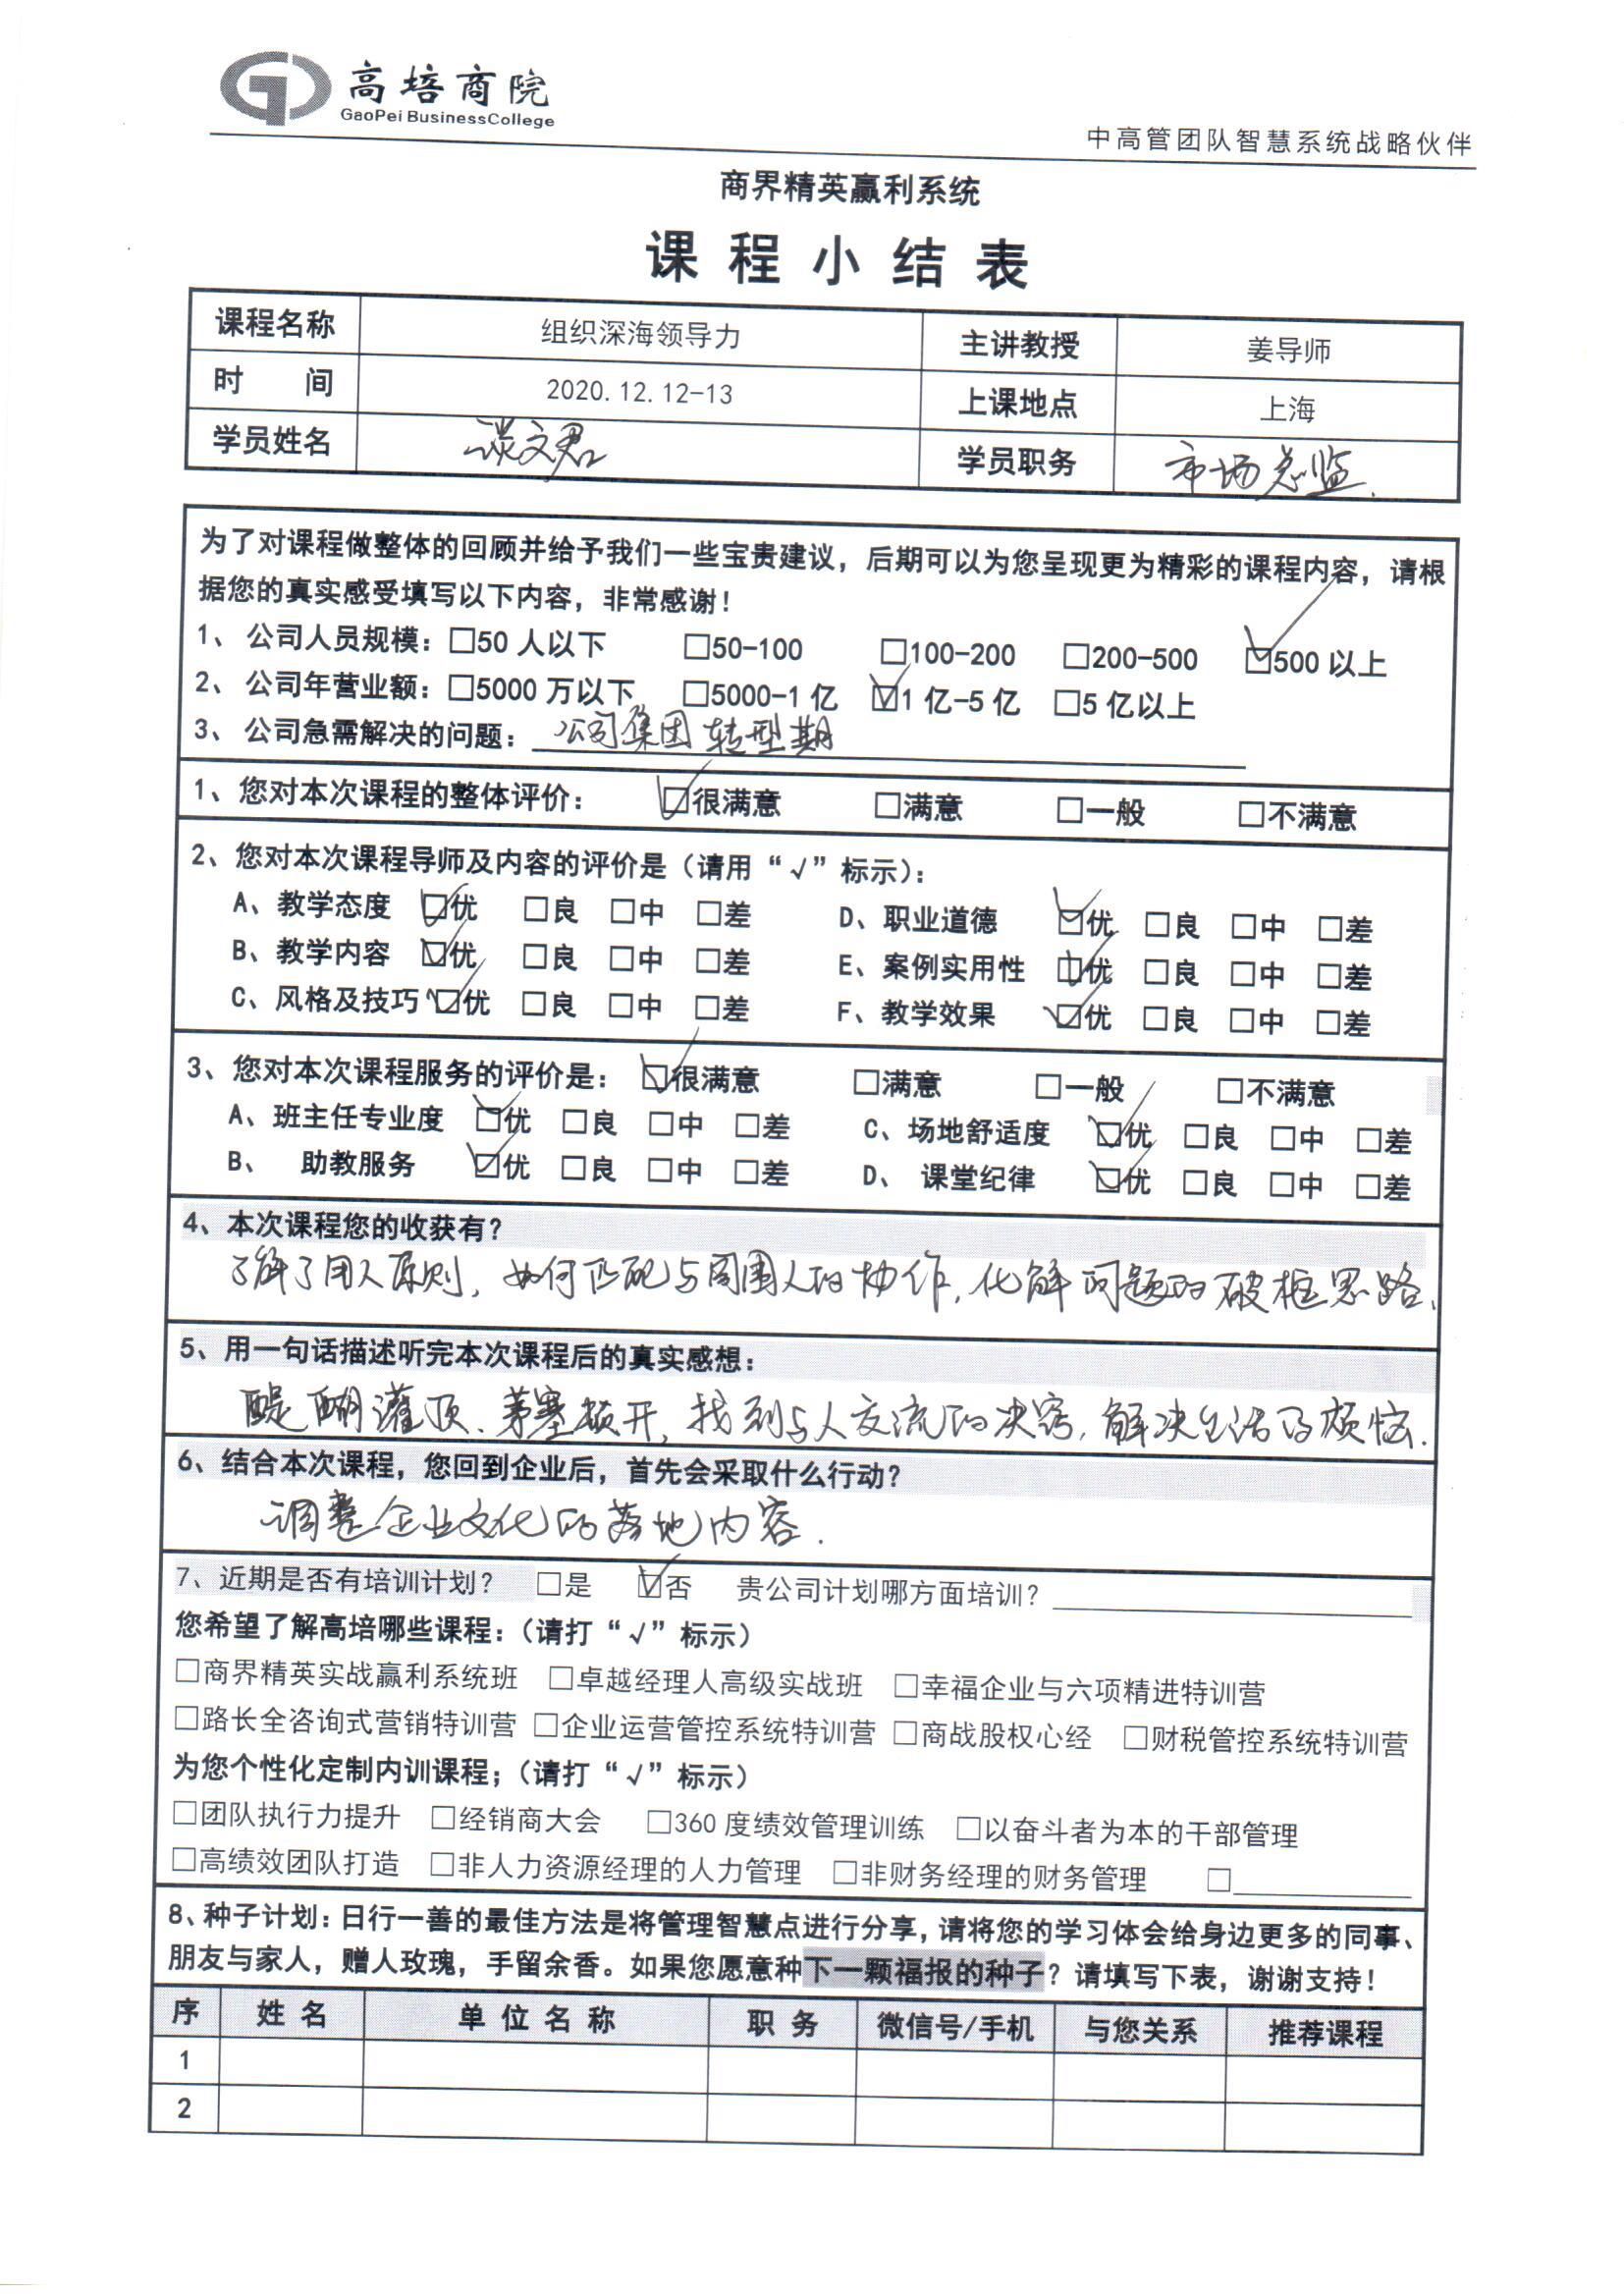 高培商院
GaoPei BusinessCollege
中高管团队智慧系统战略伙伴
商界精英赢利系统
课程小结表
课程名称 组织深海领导力 主讲教授 姜导师
时 间 2020.12.12-13 上课地点 上海
学员姓名 谈文君 学员职务 市场总监.
为了对课程做整体的回顾并给予我们一些宝贵建议，后期可以为您呈现更为精彩的课程内容，请根
据您的真实感受填写以下内容，非常感谢！
1、公司人员规模：□50人以下 □50-100 □100-200 □200-500 ☑500以上
2、公司年营业额：□5000万以下 □5000-1亿 ☑1亿-5亿 □5亿以上
3、公司急需解决的问题：公司集团转型期
1、您对本次课程的整体评价： ☑很满意 □满意 □一般 □不满意
2、您对本次课程导师及内容的评价是（请用“√”标示）：
A、教学态度 ☑优 □良 □中 □差 D、职业道德 ☑优 □良 □中 □差
B、教学内容 ☑优 □良 □中 □差 E、案例实用性 ☑优 □良 □中 □差
C、风格及技巧 ☑优 □良 □中 □差 F、教学效果 ☑优 □良 □中 □差
3、您对本次课程服务的评价是： ☑很满意 □满意 □一般 □不满意
A、班主任专业度 ☑优 □良 □中 □差 C、场地舒适度 ☑优 □良 □中 □差
B、 助教服务 ☑优 □良 □中 □差 D、 课堂纪律 ☑优 □良 □中 □差
4、本次课程您的收获有？
了解了用人原则，如何匹配与周围人的协作，化解问题的破框思路、
5、用一句话描述听完本次课程后的真实感想：
醍醐灌顶、茅塞顿开，找到与人交流的决窍，解决生活的烦恼.
6、结合本次课程，您回到企业后，首先会采取什么行动？
调整企业文化的落地内容.
7、近期是否有培训计划？ □是 ☑否 贵公司计划哪方面培训？
您希望了解高培哪些课程：（请打“√”标示）
□商界精英实战赢利系统班 □卓越经理人高级实战班 □幸福企业与六项精进特训营
□路长全咨询式营销特训营 □企业运营管控系统特训营 □商战股权心经 □财税管控系统特训营
为您个性化定制内训课程；（请打“√”标示）
□团队执行力提升 □经销商大会 □360度绩效管理训练 □以奋斗者为本的干部管理
□高绩效团队打造 □非人力资源经理的人力管理 □非财务经理的财务管理 □
8、种子计划：日行一善的最佳方法是将管理智慧点进行分享，请将您的学习体会给身边更多的同事、
朋友与家人，赠人玫瑰，手留余香。如果您愿意种下一颗福报的种子？请填写下表，谢谢支持！
序 姓 名 单 位 名 称 职 务 微信号/手机 与您关系 推荐课程
1
2